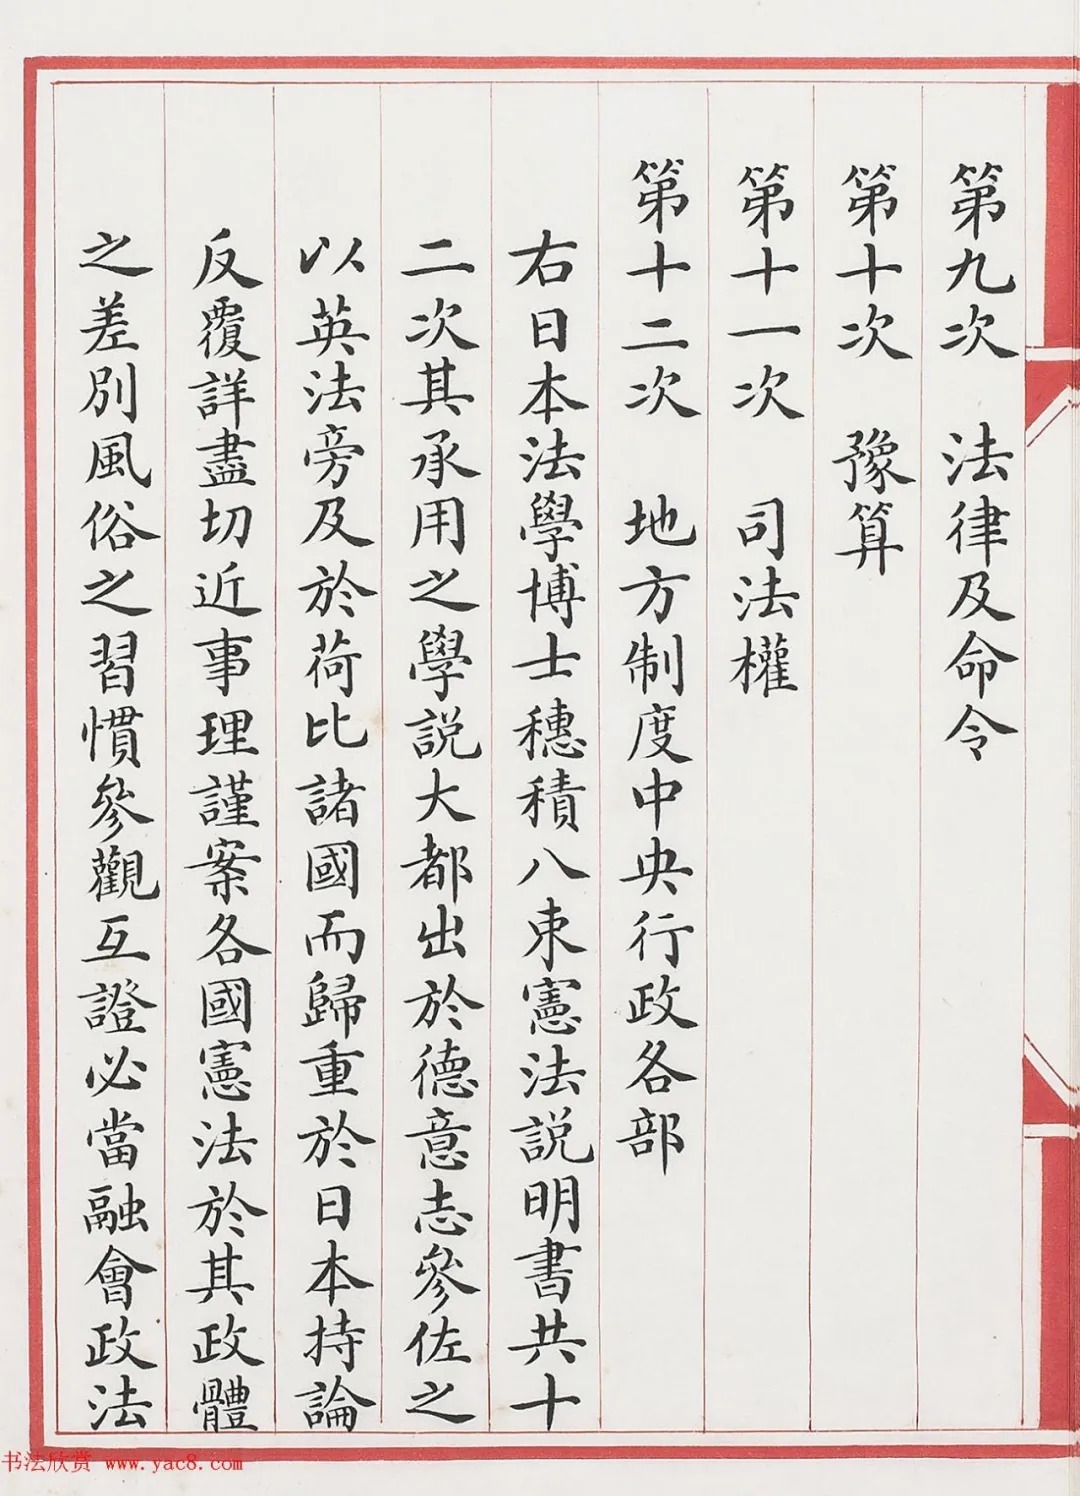 第九次　法律及命令
第十次　豫算
第十一次　司法權
第十二次　地方制度中央行政各部
右日本法學博士穗積八束憲法說明書共十
二次其承用之學說大都出於德意志參佐之
以英法旁及於荷比諸國而歸重於日本持論
反覆詳盡切近事理謹案各國憲法於其政體
之差別風俗之習慣參觀互證必當融會政法
书法欣赏 www.yac8.com